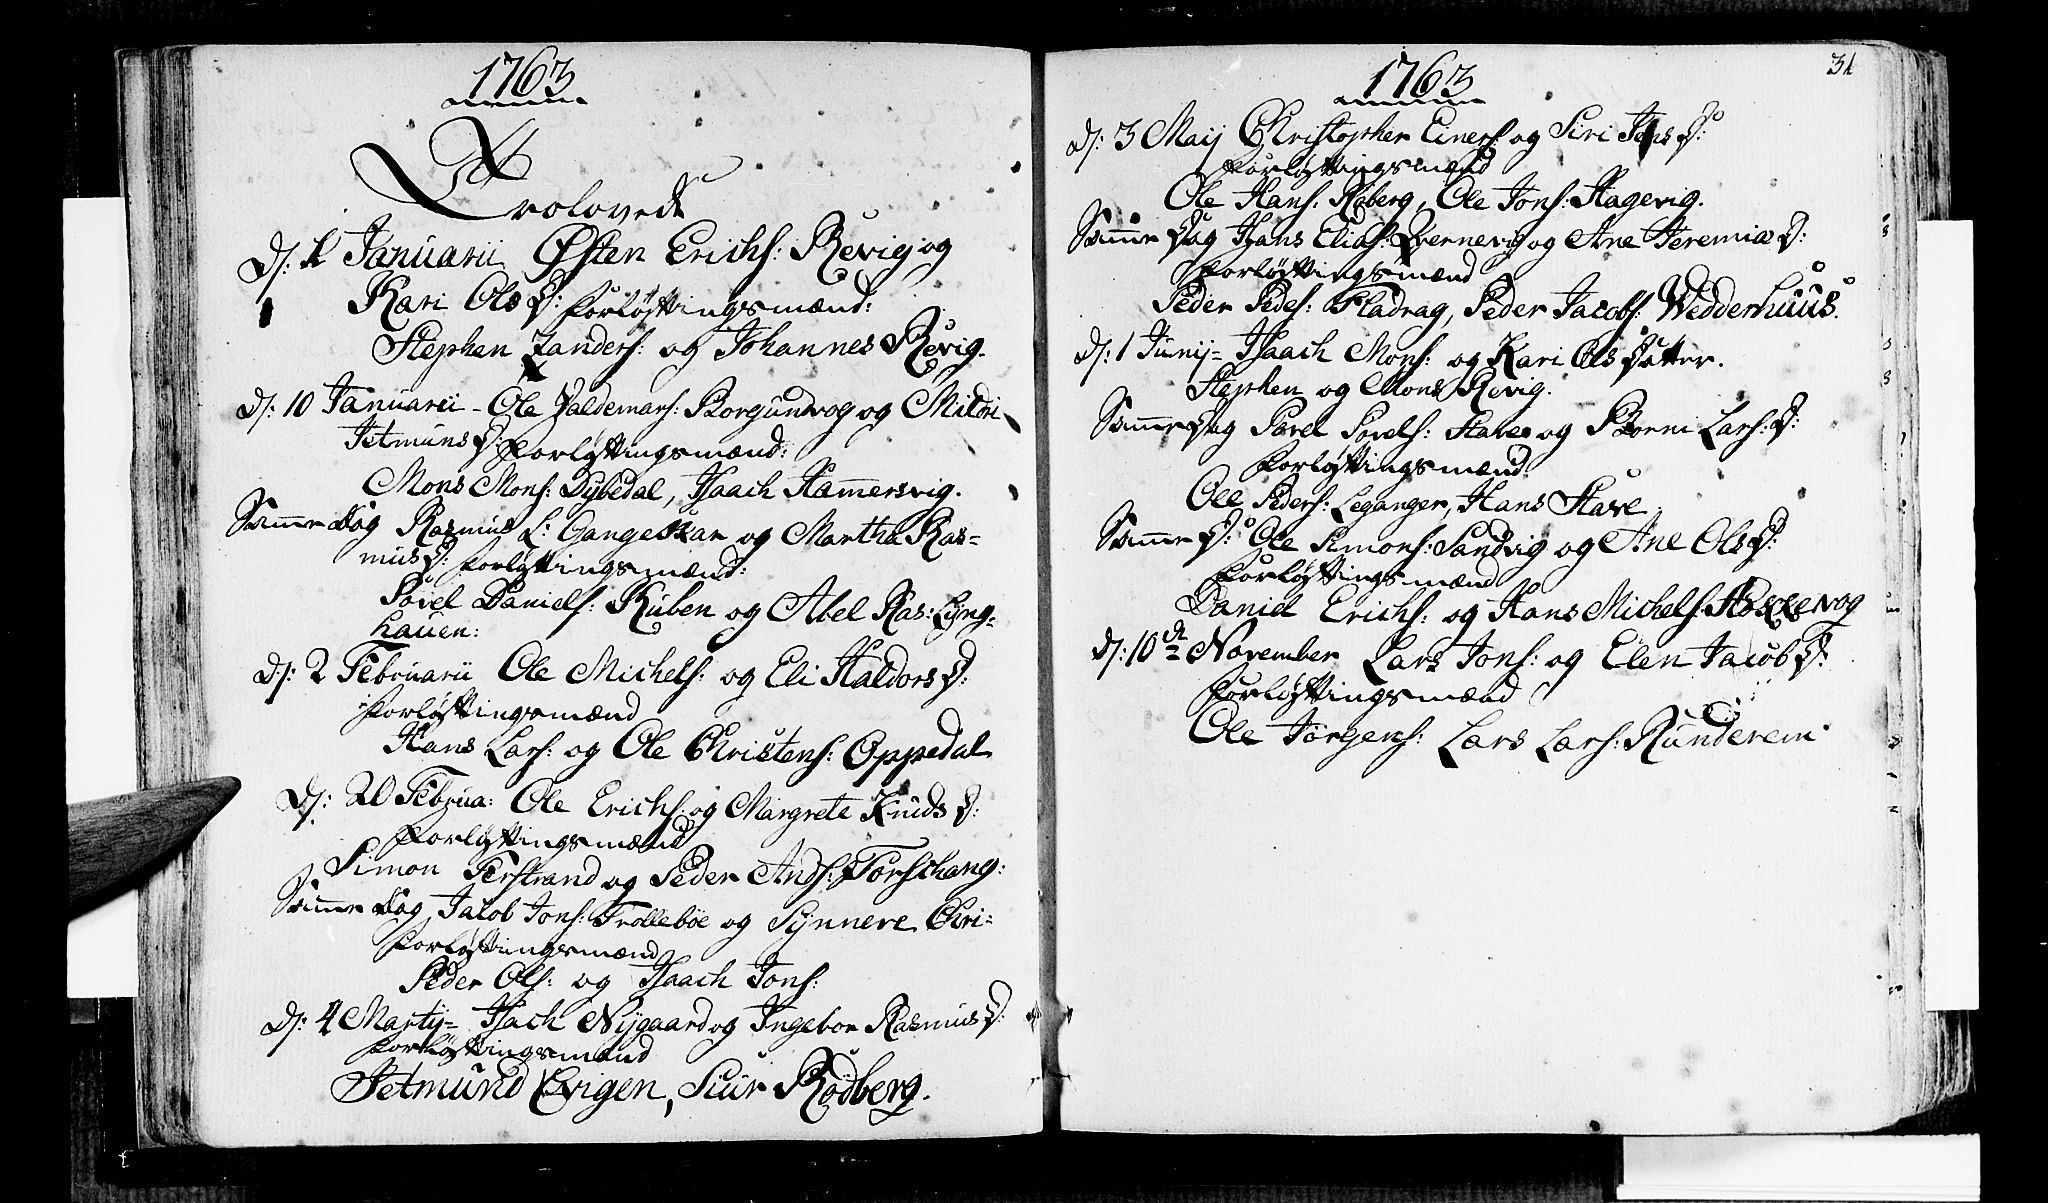 1763
Trolovede
D: 1 Januarii Østen Erichs: Revig og
Kari Ols D: Forløftingsmænd:
Stephen Zanders: og Johannes Revig.
D: 10 Januarii - Ole Valdemars: Borgundvog og Mildri
Jetmuns D: Forløftingsmænd:
Mons Mons: Dybedal, Isaach Hamersvig.
Samme Dag Rasmus L: Gangeskar og Martha Ras=
mus D: Forløftingsmænd:
Povel Daniels: Ruben og Abel Ras: Lyng=
hauen:
D: 2 Februarii Ole Michels: og Eli Haldors D:
Forløftingsmænd
Hans Lars: og Ole Christens: Oppedal
D: 20 Februa: Ole Erichs: og Margrete Knuds D:
Forløftingsmænd
Simon Ferstrand og Peder Ands: Torschang:
Samme Dag Jacob Jons: Trollebøe og Synneve Chri=
Forløftingsmænd
Peder Ols: og Isaach Jons:
D: 4 Martij= Isach Nygaard og Ingebor Rasmus D:
Forløftingsmænd
Jetmund Ervigen, Siur Rødberg.
1763
31
D: 3 Maij Christopher Einers: og Siri Jens D:
Forløftingsmænd
Ole Hans: Røberg, Ole Jons: Hagevig.
Samme Dag Hans Elias: Qvernevig og Ane Jeremiæ D:
Forløftingsmænd
Peder Peds: Fladrag, Peder Jacobs: Wedderhuus.
D: 1 Junij= Isaach Mons: og Kari Ols Datter.
Stephen og Mons Revig.
Samme Dag Povel Povels: Stave og Borni Lars: D:
Forløftingsmænd
Ole Peders: Leganger, Hans Stave
Samme D: Ole Simons: Sandvig og Ane Ols D:
Forløftingsmænd
Daniel Erichs: og Hans Michels: Hoskevog
D: 10de November Lars Jons: og Elen Jacob D:
Forløftingsmænd
Ole Jørgens: Lars Lars: Runderem.